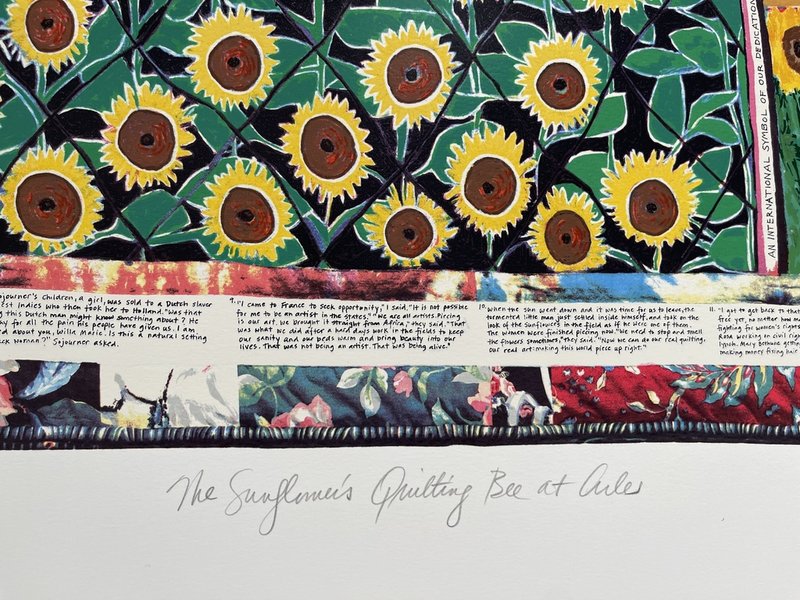 AN INTERNATIONAL SYMBOL OF OUR DEDICATION
ojourner's children, a girl, was sold to a Dutch slaver
est Indies who then took her to Holland. "Was that
g this Dutch man might know something about? He
y for all the pain his people have given us. I am
d about you, Willa Marie. Is this a natural setting
ck woman?" Sojourner asked.
9. "I came to France to seek opportunity," I said. "It is not possible
for me to be an artist in the States." "We are all artists. Piecing
is our art. We brought it straight from Africa," they said. "That
was what we did after a hard days work in the fields to keep
our sanity and our beds warm and bring beauty into our
lives. That was not being an artist. That was being alive."
10. When the sun went down and it was time for us to leave, the
tormented little man just settled inside himself, and took on the
look of the sunflowers in the field as if he were one of them.
The women were finished piecing now. "We need to stop and smell
the flowers sometimes," they said. "Now we can do our real quilting,
our real art: making this world piece up right."
11. "I got to get back to that
free yet, no matter how m
fighting for women's rights
Rosa working on civil righ
lynch. Mary Bethune getting
making money fixing hair
The Sunflower's Quilting Bee at Arles